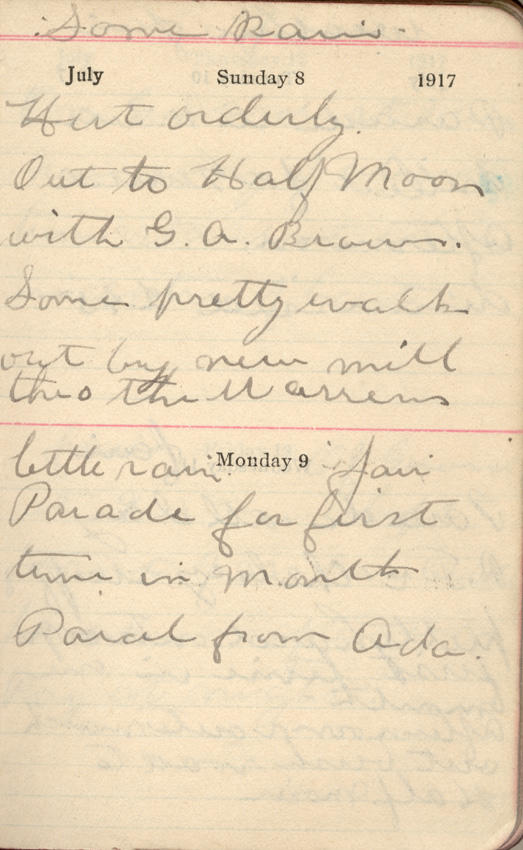 Some Rain.
July Sunday 8 1917
Hut orderly.
Out to Half Moon
with G. A. Brown.
Some pretty walk
out by new mill
thro the Warrens
little rain. Monday 9 fair
Parade for first
time in month.
Parcel from Ada.